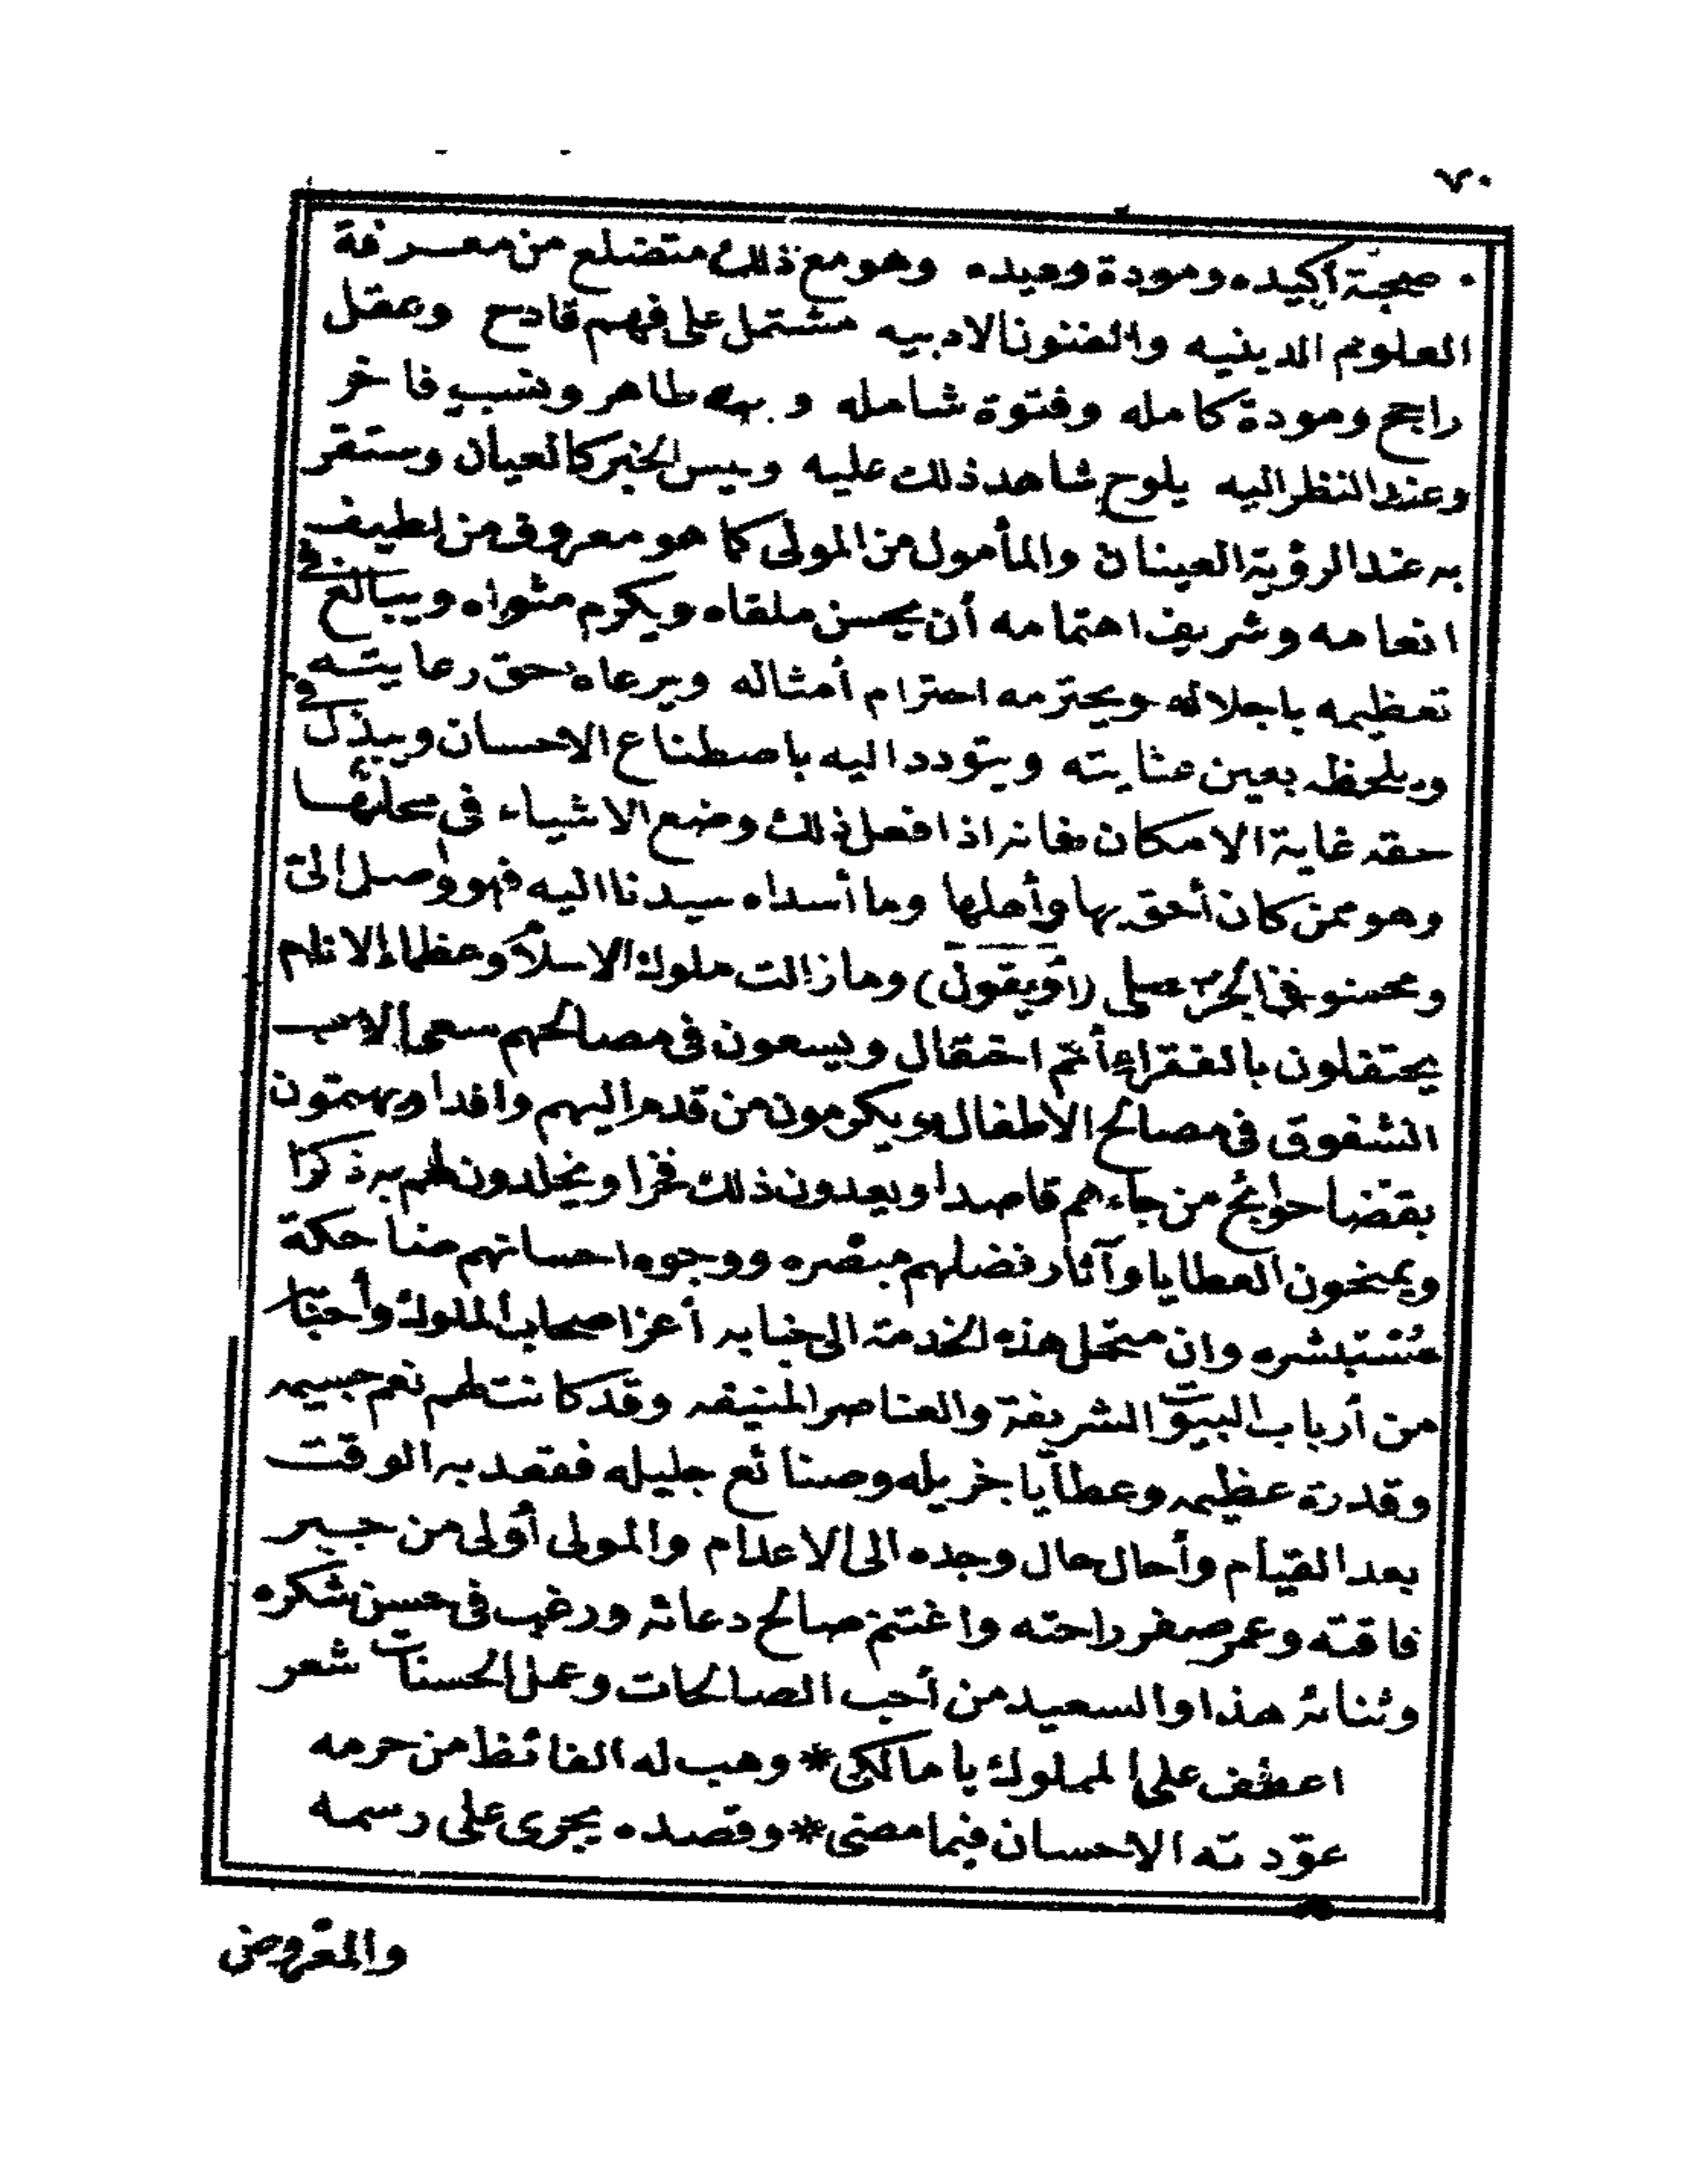 ٧٠
صحبة اكيده ومودة وحيده وهو مع ذلك متضلع من معرفة
العلوم الدينيه والفنون الادبيه مشتمل على فهم قادح وعقل
راجح ومودة كامله وفتوة شامله و طاهر ونسب فاخر
وعند النظر اليه يلوح شاهد ذلك عليه وليس الخبر كالعيان وستقر
به عند الرؤية العينان والمأمول من المولى كما هو معروف من لطيف
انعامه وشريف اهتمامه أن يحسن ملقاه ويكرم مثواه ويبالغ في
تعظيمه باجلاله ويحترمه احترام أمثاله ويرعاه بحق رعايته
ويلحظه بعين عنايته ويتودد اليه باصطناع الاحسان ويبذل في
حقه غاية الامكان فانه اذا فعل ذلك وضع الاشياء في محلها
وهو ممن كان أحق بها وأهلها وما أسداه سيدنا اليه فهو واصل الىّ
ومحسنو علىّ (أو يقول) وما زالت ملوك الاسلام وعظماء الانام
يحتفلون بالفقراء أتم احتفال ويسعون في مصالحهم سعى الاب
الشفوق في مصالح الاطفال ويكرمون من قدم اليهم وافدا ويهتمون
بقضا حوائج من جاءهم قاصدا ويعدون ذلك فخرا ويخلدون لهم به ذكرا
ويمنحون العطايا وآثار فضلهم مبصره ووجوه احسانهم ضاحكة
مستبشره وان متحمل هذه الخدمة الى جنابه أعز اصحاب الملوك وأحبّا
من أرباب البيوت الشريفة والعناصر المنيفه وقد كانت لهم نعم جسيمه
وقدرة عظيمه وعطايا جزيله وصنائع جليله فقعد به الوقت
بعد القيام وأحال حال وجده الى الاعدام والمولى أولى من جبر
فاقته وعمر صفر راحته واغتنم صالح دعائه ورغب في حسن شكره
وثنائه هذا والسعيد من أحب الصالحات وعمل الحسنات شعر
اعطف على المملوك يا مالكى * وهب له الفائظ من حرمه
عوّدته الاحسان فيما مضى * وقصده يجرى على رسمه
والمفروض